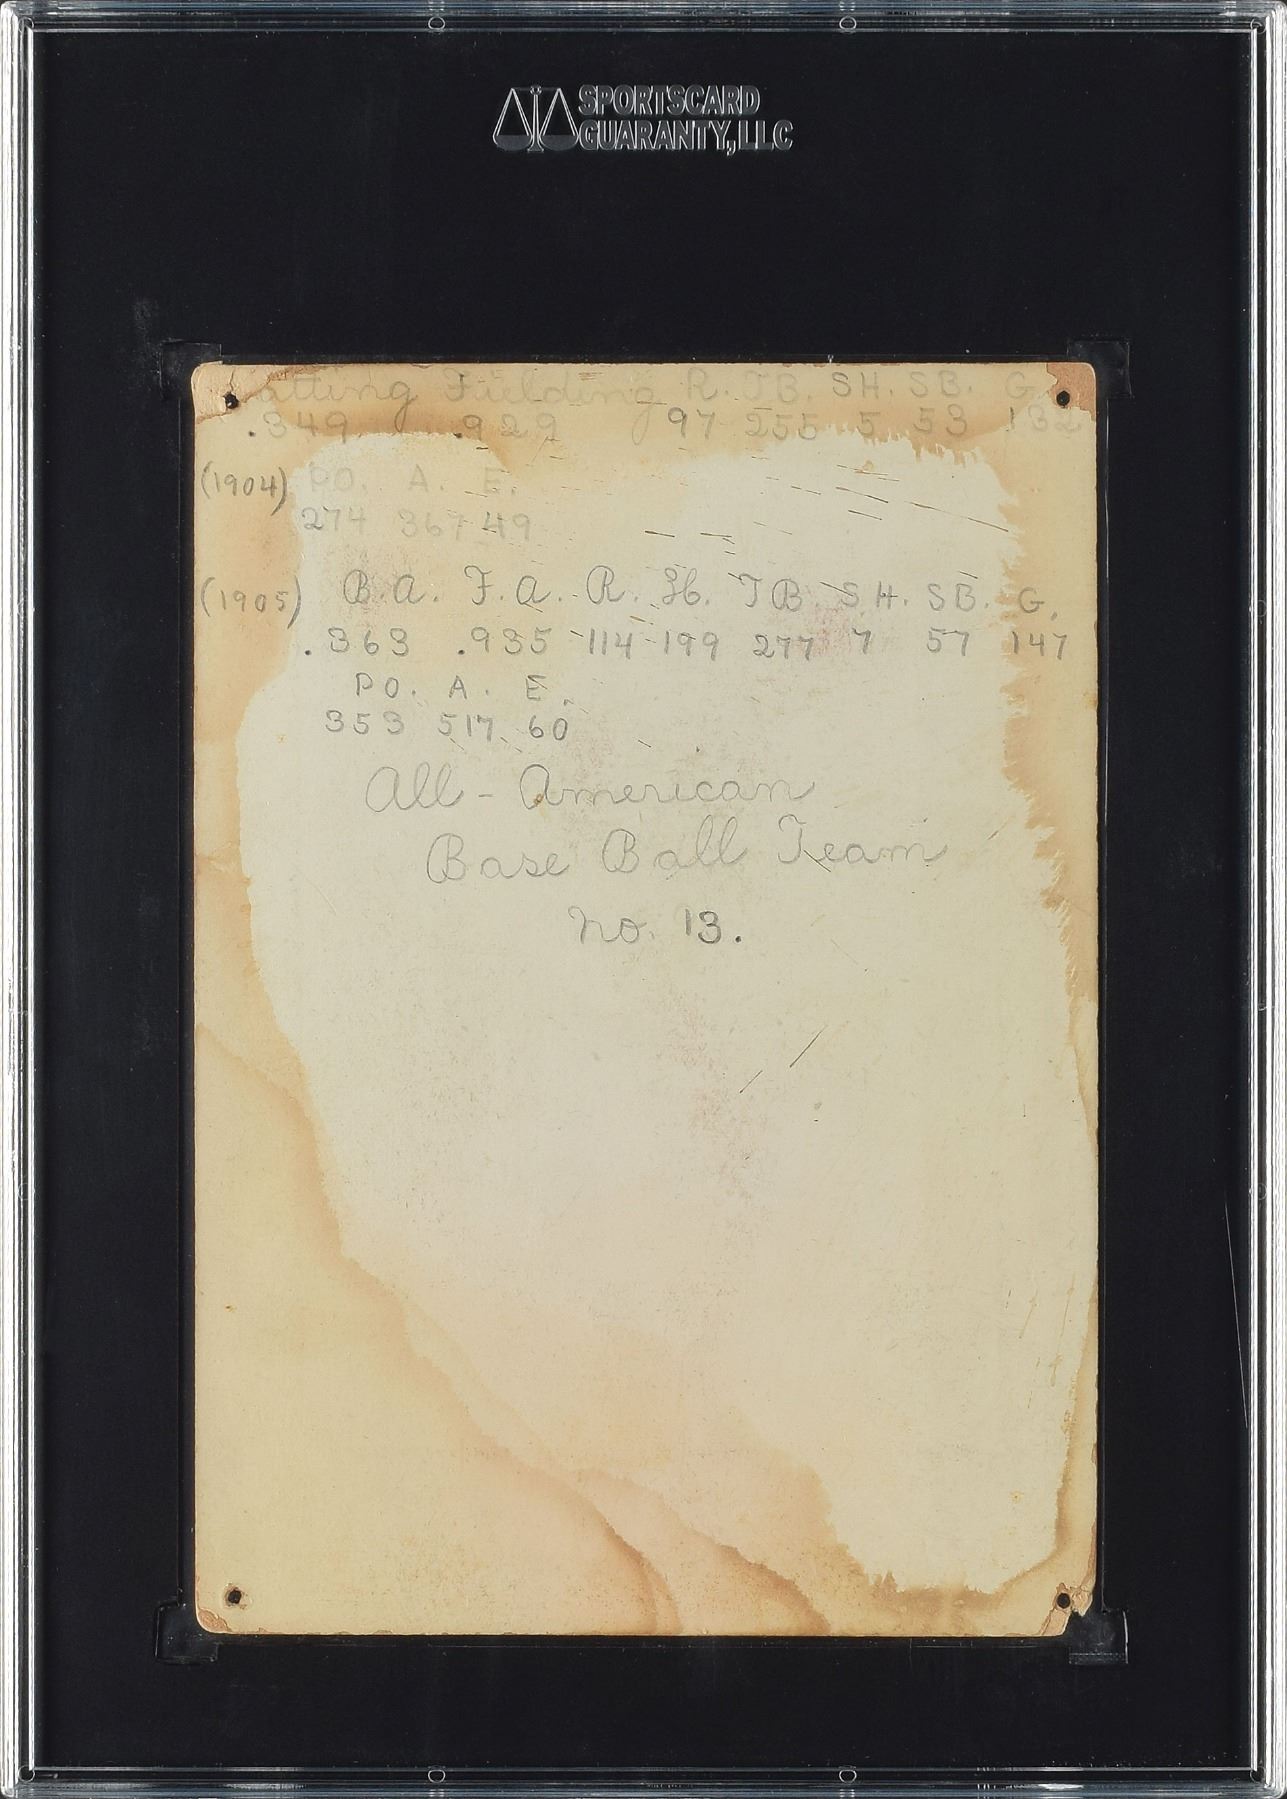 SPORTSCARD
GUARANTY, LLC
Batting Fielding R. TB. SH. SB. G.
.349 .929 97 255 5 53 132
(1904) PO. A. E.
274 367 49
(1905) B.A. F.A. R. H. TB SH. SB. G.
.363 .935 114 199 277 7 57 147
PO. A. E.
353 517 60
All-American
Base Ball Team
No. 13.